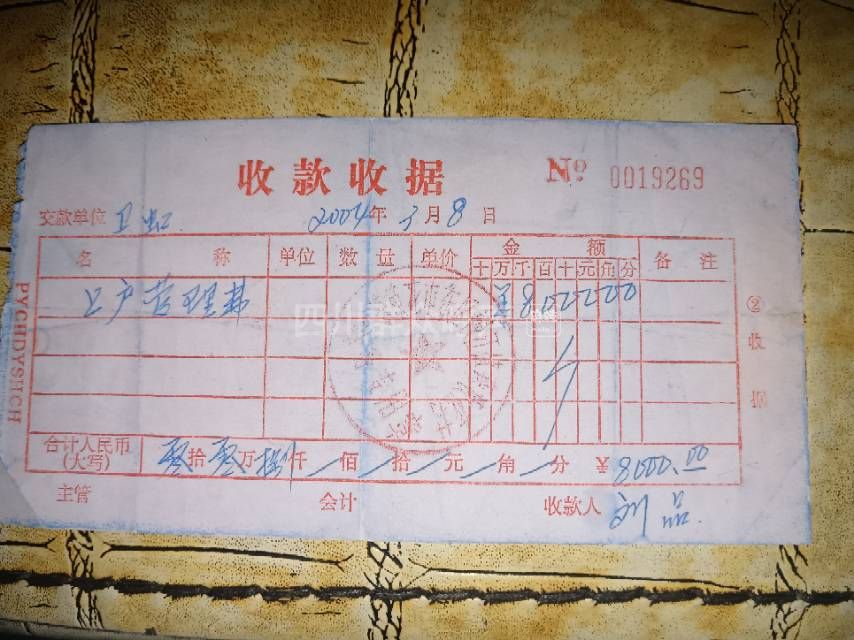 收款收据 № 0019269
交款单位 卫虹 2004年3月8日
名称 单位 数量 单价 金额 备注
十万千百十元角分
上户管理费 ¥800000
合计人民币(大写) 零拾零万捌仟/佰/拾/元/角/分 ¥8000.00
主管 会计 收款人 刘品
②收据
PYCHDYSHCH
四川群众